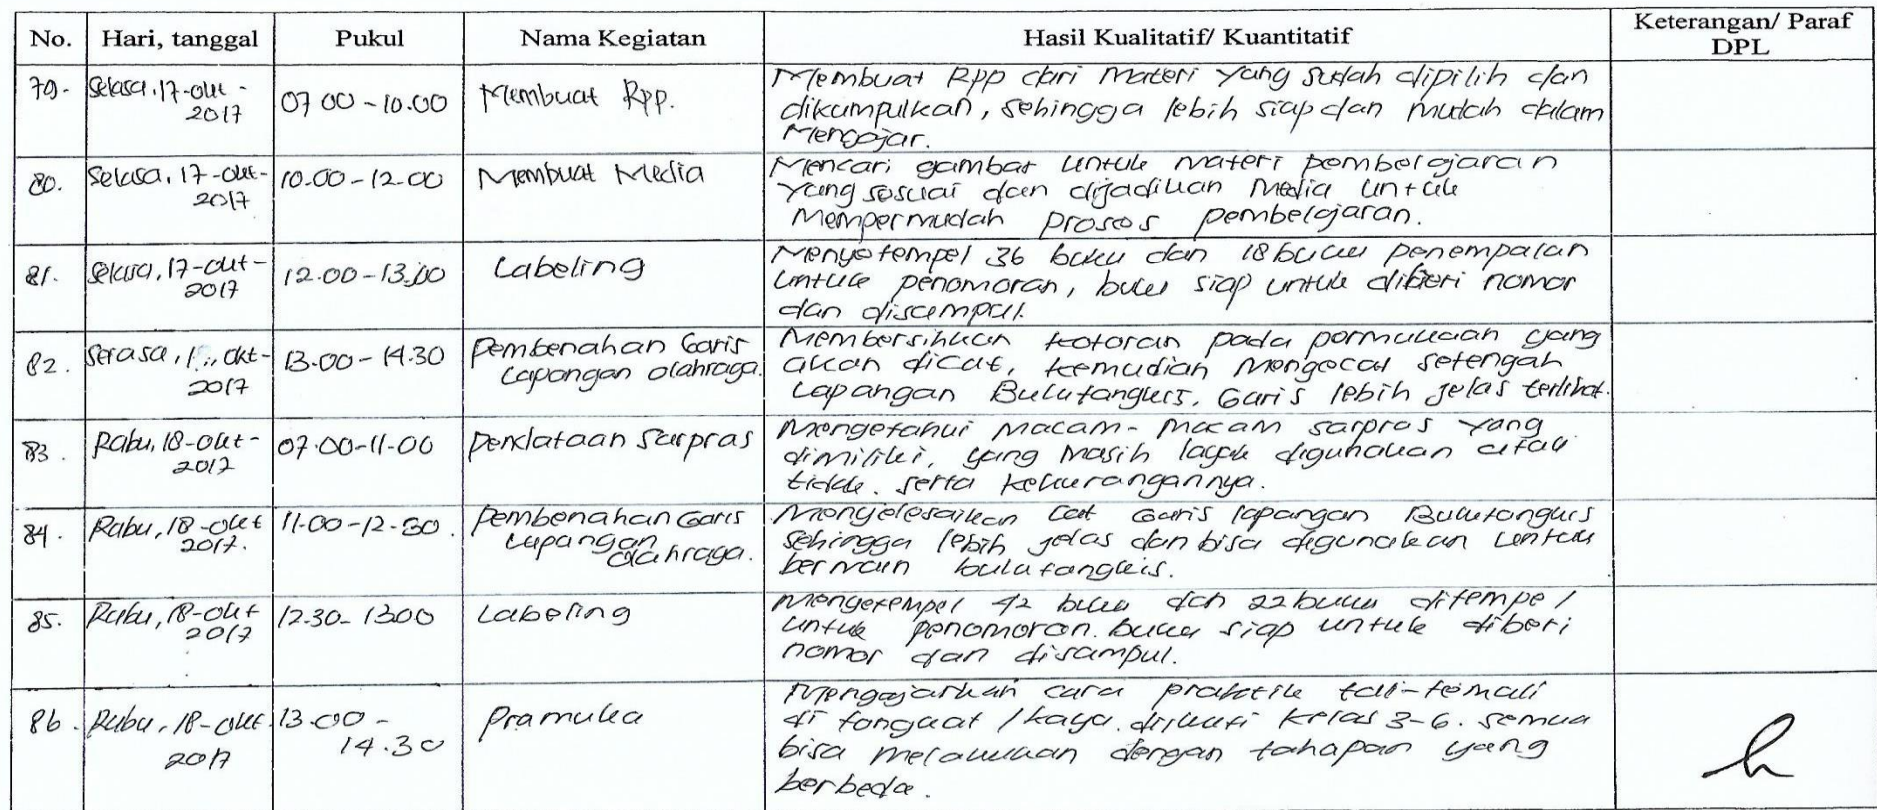 No. Hari, tanggal Pukul Nama Kegiatan Hasil Kualitatif/ Kuantitatif Keterangan/ Paraf DPL
79. Selasa, 17-okt-2017 07.00-10.00 Membuat Rpp. Membuat Rpp dari materi yang sudah dipilih dan
dikumpulkan, sehingga lebih siap dan mudah dalam
Mengajar.
80. Selasa, 17-okt-2017 10.00-12.00 Membuat Media Mencari gambar untuk materi pembelajaran
yang sesuai dan dijadikan Media untuk
Mempermudah proses pembelajaran.
81. Selasa, 17-okt-2017 12.00-13.00 Labeling Menyetempel 36 buku dan 18 buku penempalan
untuk penomoran, buku siap untuk diberi nomor
dan disampul.
82. Selasa, okt-2017 13.00-14.30 Pembenahan Garis Lapangan olahraga. Membersihkan kotoran pada permukaan yang
akan dicat, kemudian Mengecat setengah
Lapangan Bulutangkis. Garis lebih jelas terlihat.
83. Rabu, 18-okt-2017 07.00-11.00 pendataan Sarpras Mengetahui macam-macam sarpras yang
dimiliki, yang masih layak digunakan atau
tidak. serta kekurangannya.
84. Rabu, 18-okt 2017. 11.00-12.30. Pembenahan Garis Lapangan olahraga. Menyelesaikan cat Garis lapangan Bulutangkis
Sehingga lebih jelas dan bisa digunakan untuk
bermain bulutangkis.
85. Rabu, 18-okt 2017 12.30-1300 Labeling Mengetempel 42 buku dan 22 buku ditempel
untuk penomoran. buku siap untuk diberi
nomor dan disampul.
86. Rabu, 18-okt 2017 13.00-14.30 Pramuka Mengajarkan cara praktik tali-temali
di tongkat / kayu. diikuti kelas 3-6. semua
bisa melakukan dengan tahapan yang
berbeda.